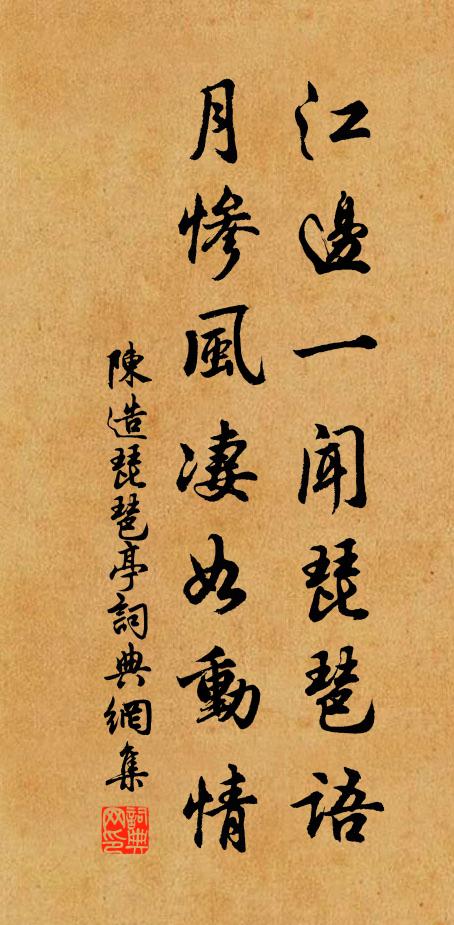 江邊一聞琵琶語
月慘風凄如動情
陳造琵琶亭詞典網集
詞典网印